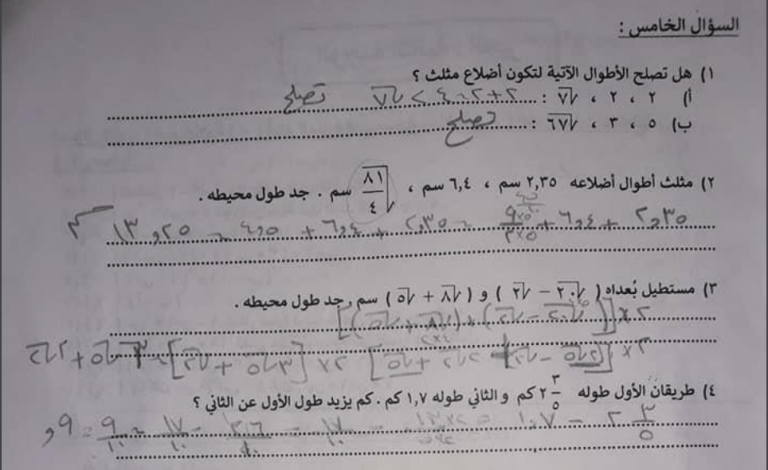 السؤال الخامس :
١) هل تصلح الأطوال الآتية لتكون أضلاع مثلث ؟
أ) ٢ ، ٢ ، √٧ : ٢+٢ = ٤ > √٧ تصلح
ب) ٥ ، ٣ ، √٦٧ : تصلح
٢) مثلث أطوال أضلاعه ٢,٣٥ سم ، ٦,٤ سم ، √٨١/٤ سم . جد طول محيطه .
٢,٣٥ + ٦,٤ + ٩×٥/٢×٥ = ٢,٣٥ + ٦,٤ + ٤,٥ = ١٣,٢٥ سم
٣) مستطيل بُعداه ( √٢٠ − √٢ ) و ( √٨ + √٥ ) سم , جد طول محيطه .
٢×[(√٢٠ − √٢) + (√٨ + √٥)]
٢×[٢√٥ − √٢ + ٢√٢ + √٥] ٢×[٣√٥ + √٢] = ٦√٥ + ٢√٢
٤) طريقان الأول طوله ٢ ٣/٥ كم و الثاني طوله ١,٧ كم . كم يزيد طول الأول عن الثاني ؟
٢ ٣/٥ − ١,٧ = ١٣×٢/٥×٢ − ١٧/١٠ = ٢٦/١٠ − ١٧/١٠ = ٩/١٠ = ٩,